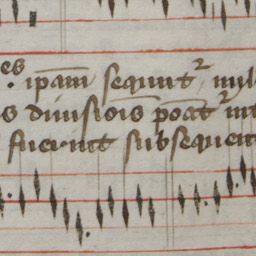 es
. ipam̄ sequnt᷑ nyl
s diuisiōis poāt᷑ int
fuerint subsequent